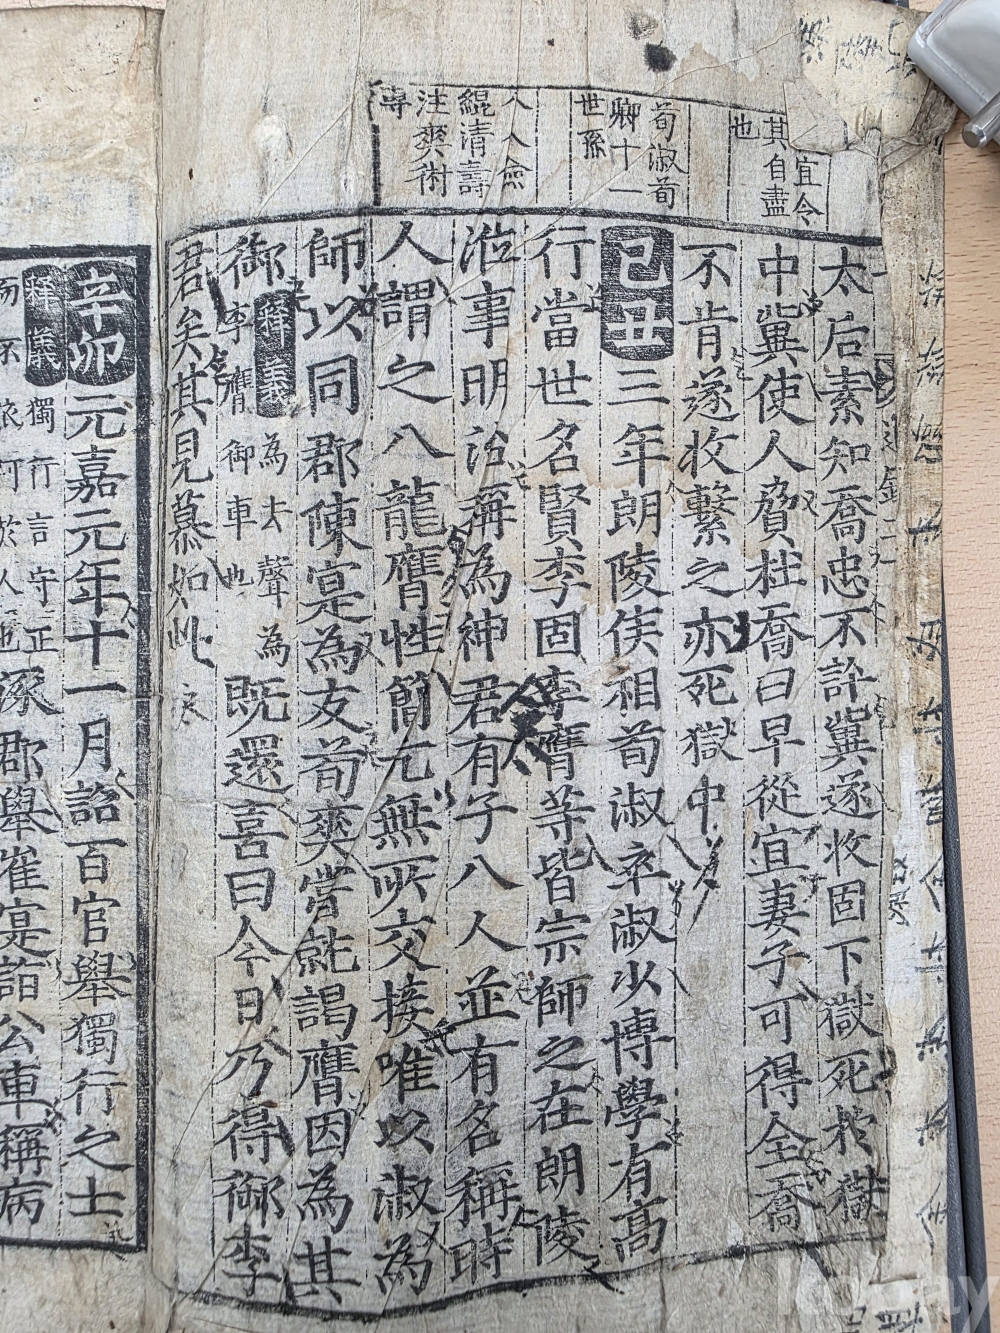 宜令
其自盡
也
荀淑荀
卿十一
世孫
鯤清壽
注爽術
太后素知喬忠不許冀遂收固下獄死於獄
中冀使人脅杜喬曰早從宜妻子可得全喬
不肯遂收繫之亦死獄中
己丑三年朗陵侯相荀淑卒淑少博學有高
行當世名賢李固李膺等皆宗師之在朗陵
涖事明治稱為神君有子八人並有名稱時
人謂之八龍膺性簡亢無所交接唯以淑為
師以同郡陳寔為友荀爽嘗就謁膺因為其
御釋義為去聲為李膺御車也既還喜曰今日乃得御李
君矣其見慕如此
辛卯元嘉元年十一月詔百官舉獨行之士
釋義獨行言守正而不依阿於人也涿郡舉崔寔詣公車稱病